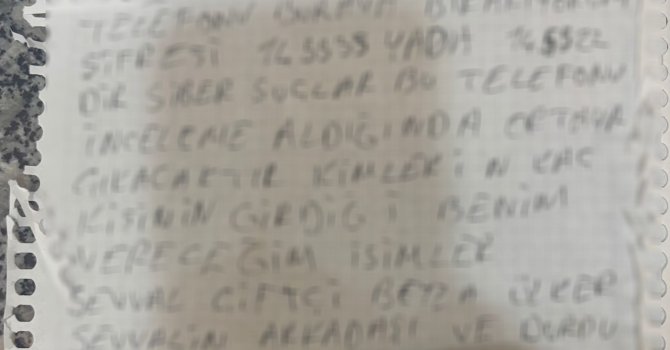 TELEFONU BURAYA BIRAKIYORUM
ŞİFRESİ 145555 YADA
DIR SİBER SUÇLAR BU TELEFONU
İNCELEME ALDIĞINDA ORTAYA
ÇIKACAKTIR KİMLERİN KAÇ
KİSİNİN GİRDİĞİ BENİM
VERECEĞİM İSİMLER
ŞEVVAL ÇİFTÇİ BEYZA ÜLKER
ŞEVVALİN ARKADAŞI VE